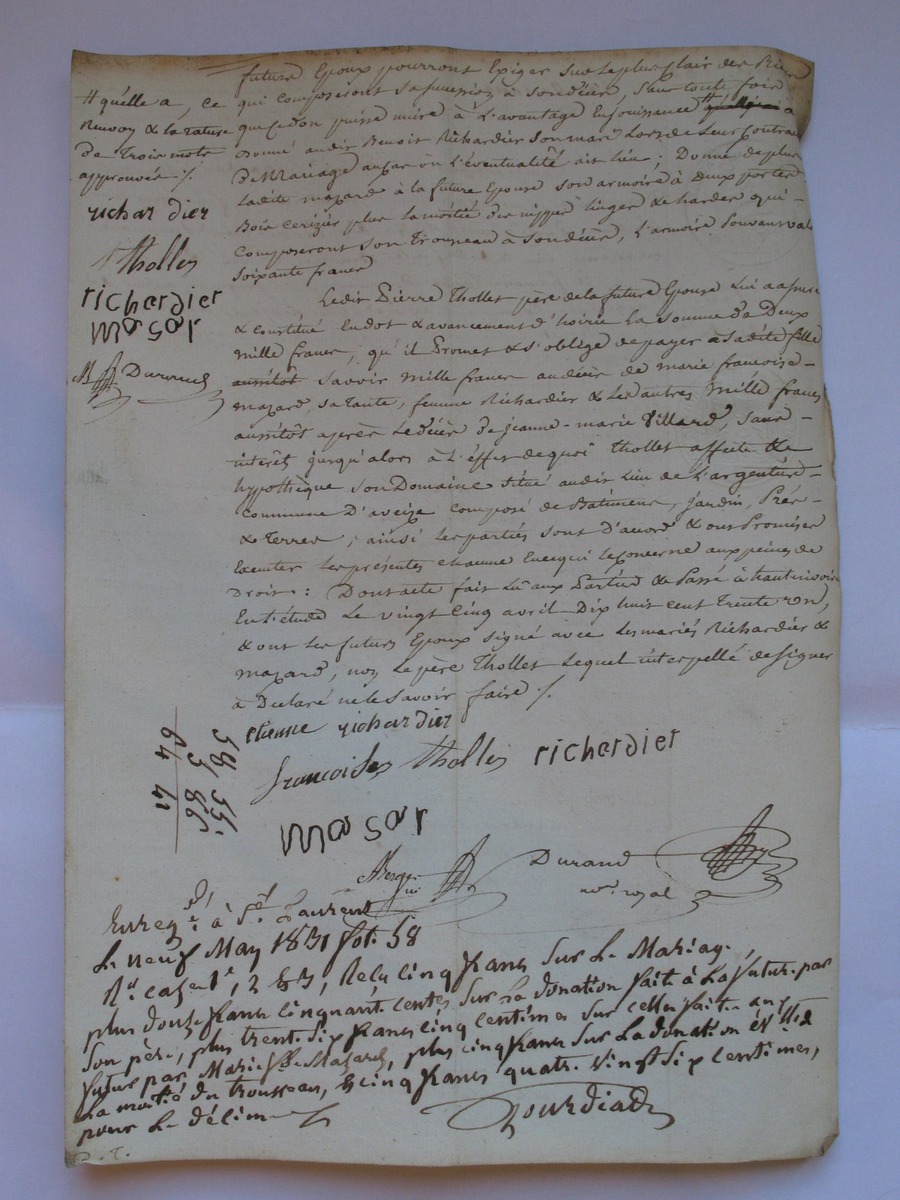 futurs Epoux pourront Exiger sur le plus Clair des Biens
qui composeront sa succession à son décès, sans toute fois
que ce don puisse nuire à l'avantage En jouissance #
donné audit Benoit Richardier son mari lors de leur Contrat
de Mariage au cas où l'éventualité ait lieu : Donne de plus
Ladite mazard à la future Epouse son armoire à deux portes
Bois cerizier plus la moitié des nippes linges & hardes qui
Composeront son Trousseau à son décès, l'armoire Pouvant valoir
Soixante francs
# qu'elle a, ce
Renvoy & la rature
de Trois mots
approuvés ./.
richardier
f Thollet
richardier
masar
Ledit Pierre Thollet père de la future Epouse lui a assuré
& constitué En dot & avancement d'hoirie la somme de Deux
Mille francs, qu'il Promet & s'oblige de payer à sadite fille
aussitôt savoir Mille francs au décès de marie francoise
mazard sa tante, femme Richardier & les autres Mille francs
aussitôt après le décès de jeanne-marie Villard, sans
intérêt jusqu'alors à L'effet de quoi Thollet affecte &
hypothèque son Domaine situé audit Lieu de L'argentière
commune D'aveize composé de Bâtiments, jardin, Prés
& Terres ; ainsi les parties sont d'accord & ont Promis
Executer les présentes chacune En ce qui le concerne aux peines de
Droit : Dont acte fait Lu aux Parties & Passé à hauterivoire
En l'étude Le vingt Cinq avril Dix huit cent Trente un,
& ont les futurs Epoux signé avec les mariés Richardier &
mazard, non Le père Thollet Lequel interpellé de signer
à Déclaré ne le savoir faire ./.
etienne richardier
francoise Thollet richardier
masar
Durand
no.re royal
58 55.
5 86
64 41
Enreg.é à S.t Laurent
Le neuf May 1831 fol. 58
R.o case 1e, 2 & 3, Reçu cinq francs sur Le Mariage,
plus douze francs cinquante centes sur La donation fait à La future par
Son père, plus trente six francs cinq centimes sur celle faite au
futur par Marie f.se Mazard, plus cinq francs sur La donation
La moitié du trousseau, & cinq francs quatre vingt six centimes,
pour Le décime